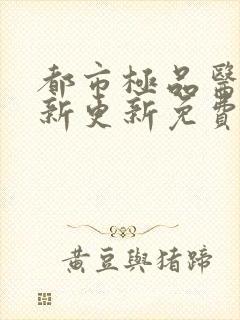 都市極品醫
新更新免費
黃豆與猪蹄